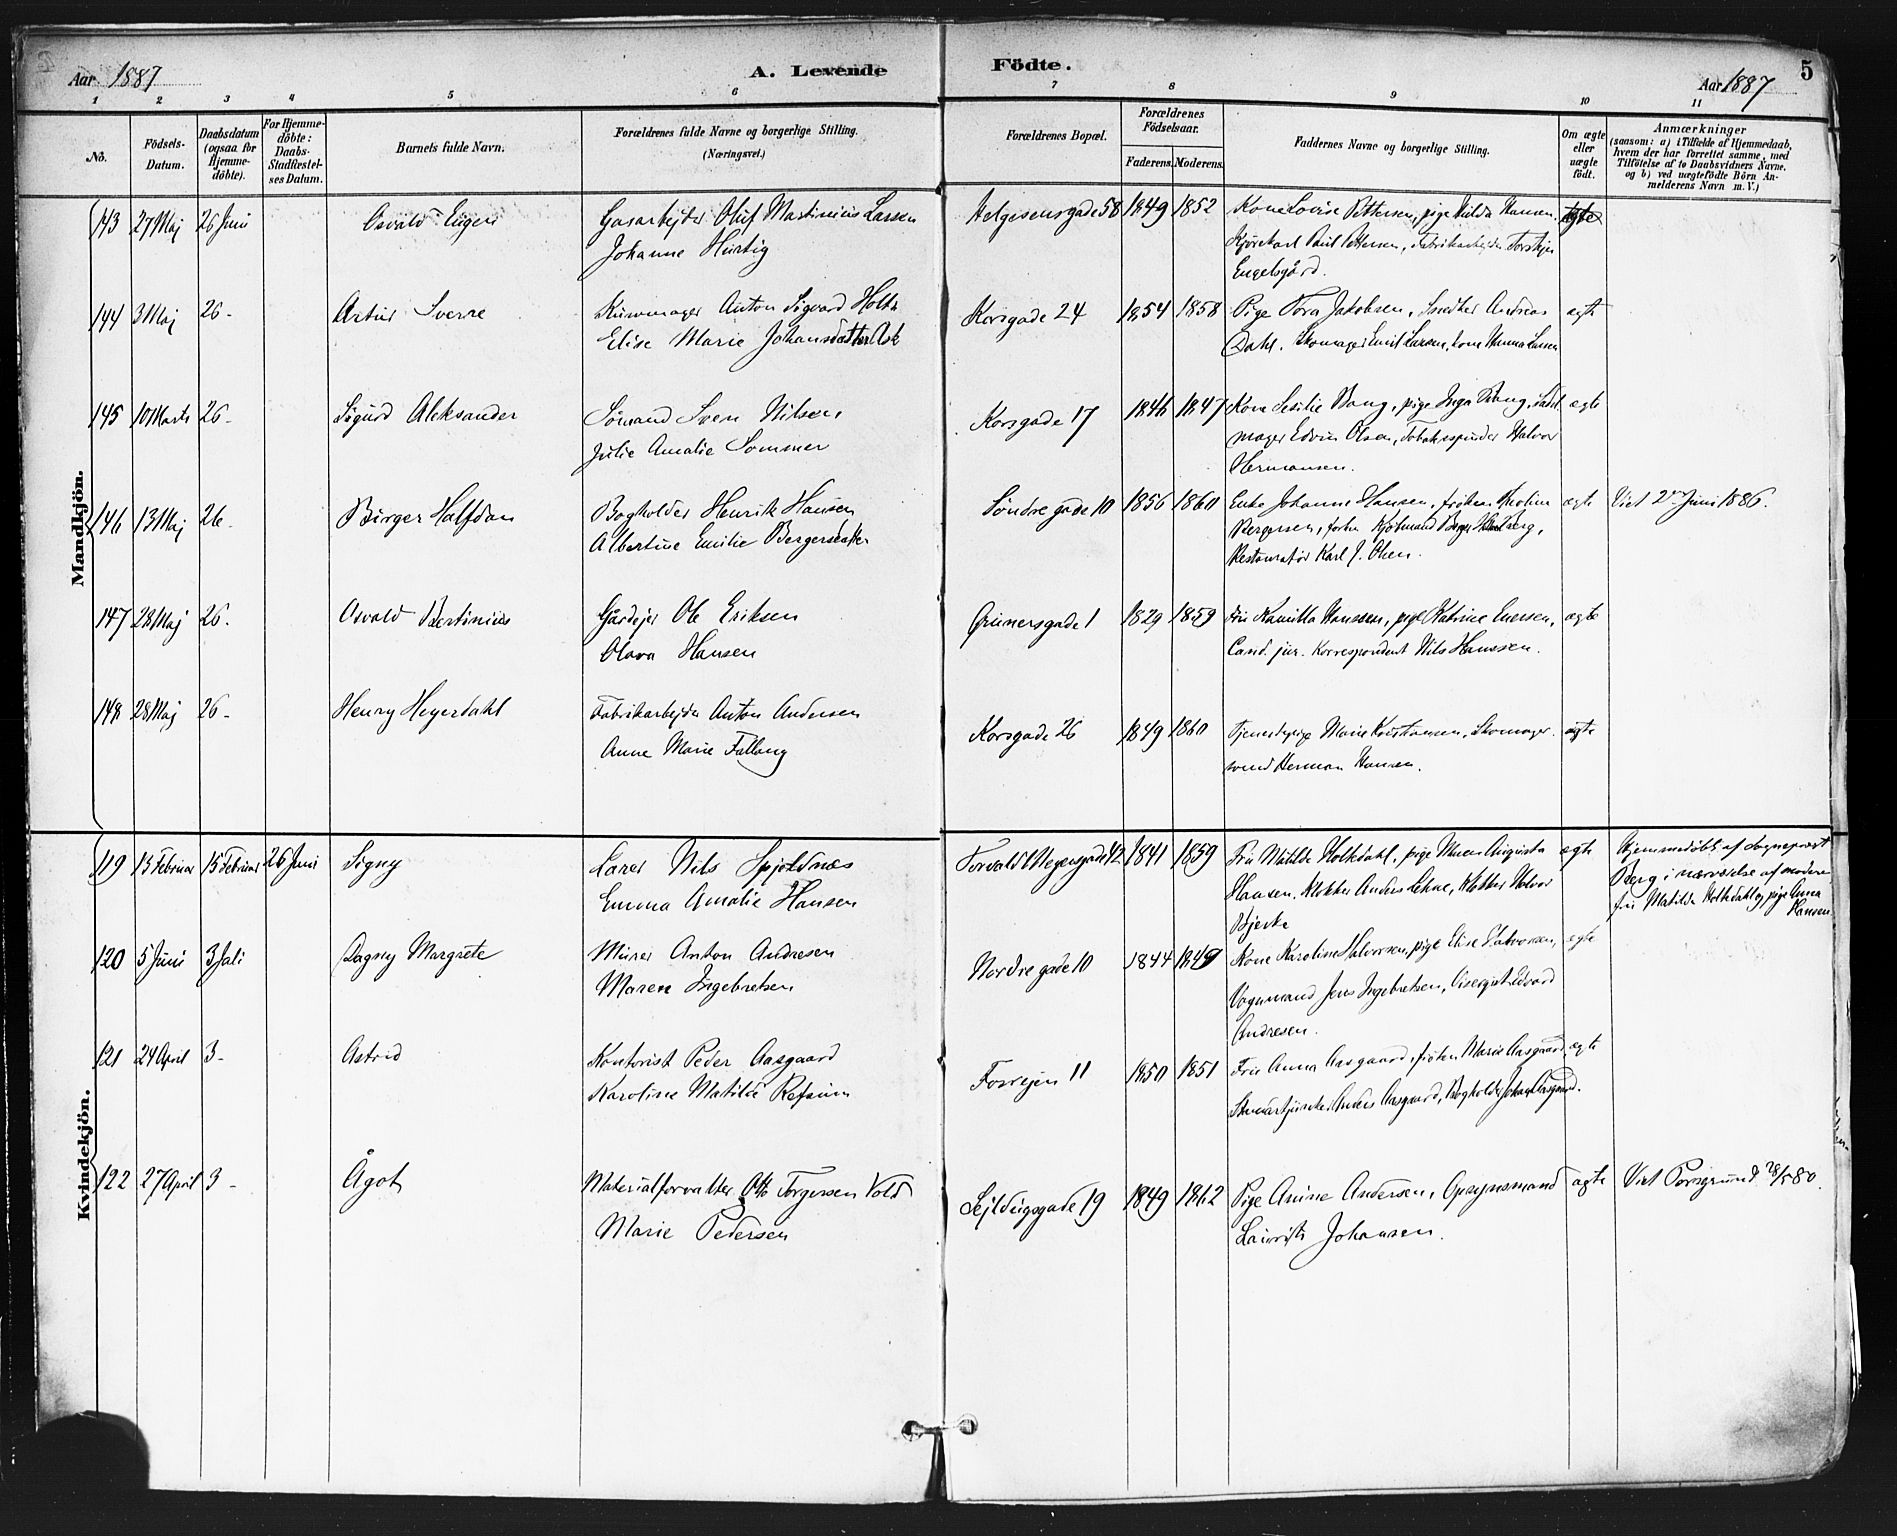 Aar 1887 A. Levende Födte. Aar 1887 5
1 2 3 4 5 6 7 8 9 10 11
No.
Födsels-Datum.
Daabsdatum (ogsaa for Hjemme-döbte).
For Hjemme-döbte: Daabs-Stadfæstel-ses Datum.
Barnets fulde Navn.
Forældrenes fulde Navne og borgerlige Stilling.
(Næringsvei.)
Forældrenes Bopæl.
Forældrenes Födselsaar.
Faderens. Moderens.
Faddernes Navne og borgerlige Stilling.
Om ægte eller uægte födt.
Anmærkninger
(saasom: a) i Tilfælde af Hjemmedaab, hvem der har forrettet samme, med Tilföielse af to Daabsvidners Navne, og b) ved uægtefödte Börn An-melderens Navn m. V.)
Mandkjön.
143 27 Maj 26 Juni Osvald Eugen Gasarbejder Oluf Martinius Larsen Helgesensgade 58 1849 1852 Kone Lovise Pettersen, pige Hilda Hansen, ægte
Johanne Hurtig Kjørekarl Paul Pettersen, Fabrikarbejder Torstejn
Engelsgård.
144 3 Maj 26- Artur Sverre Anton Sigvard Holth Korsgade 24 1854 1858 Pige Tora Jakobsen, Snedker Andreas ægte
Elise Marie Johansdatter Ask Dahl. Skomager Emil Larsen, kone Hanna Larsen
145 10 Marts 26- Sigurd Aleksander Sømand Sven Nilsen, Korsgade 17 1846 1847 Kone Sesilie Bang, pige Inga Bang, Sadel- ægte
Julie Amalie Sommer mager Edvin Olsen, Tobaksspinder Halvor
Hermansen.
146 13 Maj 26- Birger Halfdan Bogholder Henrik Hansen Søndre gade 10 1856 1860 Enke Johanne Hansen, frøken Karoline ægte Viet 2den Juni 1886.
Albertine Emilie Bergersdatter Bergersen, forhv. Kjøbmand
Restauratør Karl J. Olsen.
147 28 Maj 26. Osvald Bertinius Gårdejer Ole Eriksen Grünersgade 1 1829 1859 Fru Kamilla Hanssen, pige Katrine Iversen, ægte
Olava Hansen Cand. jur. Korrespondent Nils Hanssen.
148 28 Maj 26- Henry Heyerdahl Fabrikarbejder Anton Andersen Korsgade 26 1849 1860 Tjenestepige Marie Kristiansen, Skomager- ægte
Anne Marie Fallang svend Herman Hansen.
Kvindekjön.
119 15 Februar 15 Februar 26 Juni Signy Lærer Nils Spjeldnæs Torvald Meyersgade 42 1841 1859 Fru Matilde Holtedahl, pige Maren Augusta ægte Hjemmedøbt af Sogneprest
Emma Amalie Hansen Hansen, Klokker Anders Lehne, Klokker Halvor Berg i nærværelse af moderen
Bjerke fru Matilda Holtedahl og pige Anna
Hansen
120 5 Juni 3 Juli Dagny Margrete Murer Anton Andresen Nordre gade 10 1844 1849 Kone Karoline Halvorsen, pige Elise Halvorsen, ægte
Maren Ingebretsen Vognmand Jens Ingebretsen, Visergut Edvard
Andresen.
121 24 April 3- Astrid Kontorist Peder Aasgaard Fossvejen 11 1850 1851 Fru Anna Aasgaard, frøken Marie Aasgaard, ægte
Karoline Matilde Refsum Anders Aasgaard, Bogholder Johan Aasgaard.
122 27 April 3- Ågot Materialforvalter Otto Torgersen Vold Sejldugsgade 19 1849 1862 Pige Anine Andersen, Opsynsmand ægte Viet Porsgrund 28/5 80.
Marie Pedersen Lauritz Johansen.